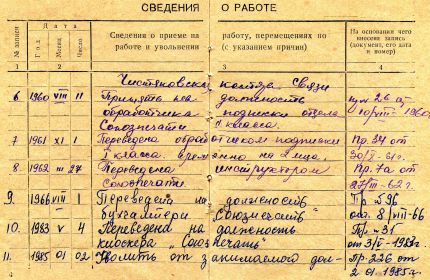 СВЕДЕНИЯ О РАБОТЕ
№ записи
Дата
Год
Месяц
Число
Сведения о приеме на работу, перемещениях по
работе и увольнении (с указанием причин)
На основании чего
внесена запись
(документ, его дата
и номер)
1 2 3 4
контора связи
6 1960 VIII 11 Принята на должность пр 26 от
обработчика подписки отдела 10/VIII 1960
Союзпечати I класса.
7 1961 XI 1 Переведена обработчиком подписки Пр. 34 от
I класса. временно на 2 мца, 30/X-61г.
8 1962 III 27 Переведена инструктором Пр. 7а от
Союзпечати. 27/III-62 г.
9. 1966 VIII 1 Переведена на должность Пр №96
бухгалтера "Союзпечать" от 8/VIII-66
10. 1983 V 4 Переведена на должность Пр №31
киоскера "Союзпечать" от 3/V-1983г.
11. 1985 01 02 Уволить от занимаемого дол- Пр-226 от
2.01.1985г.